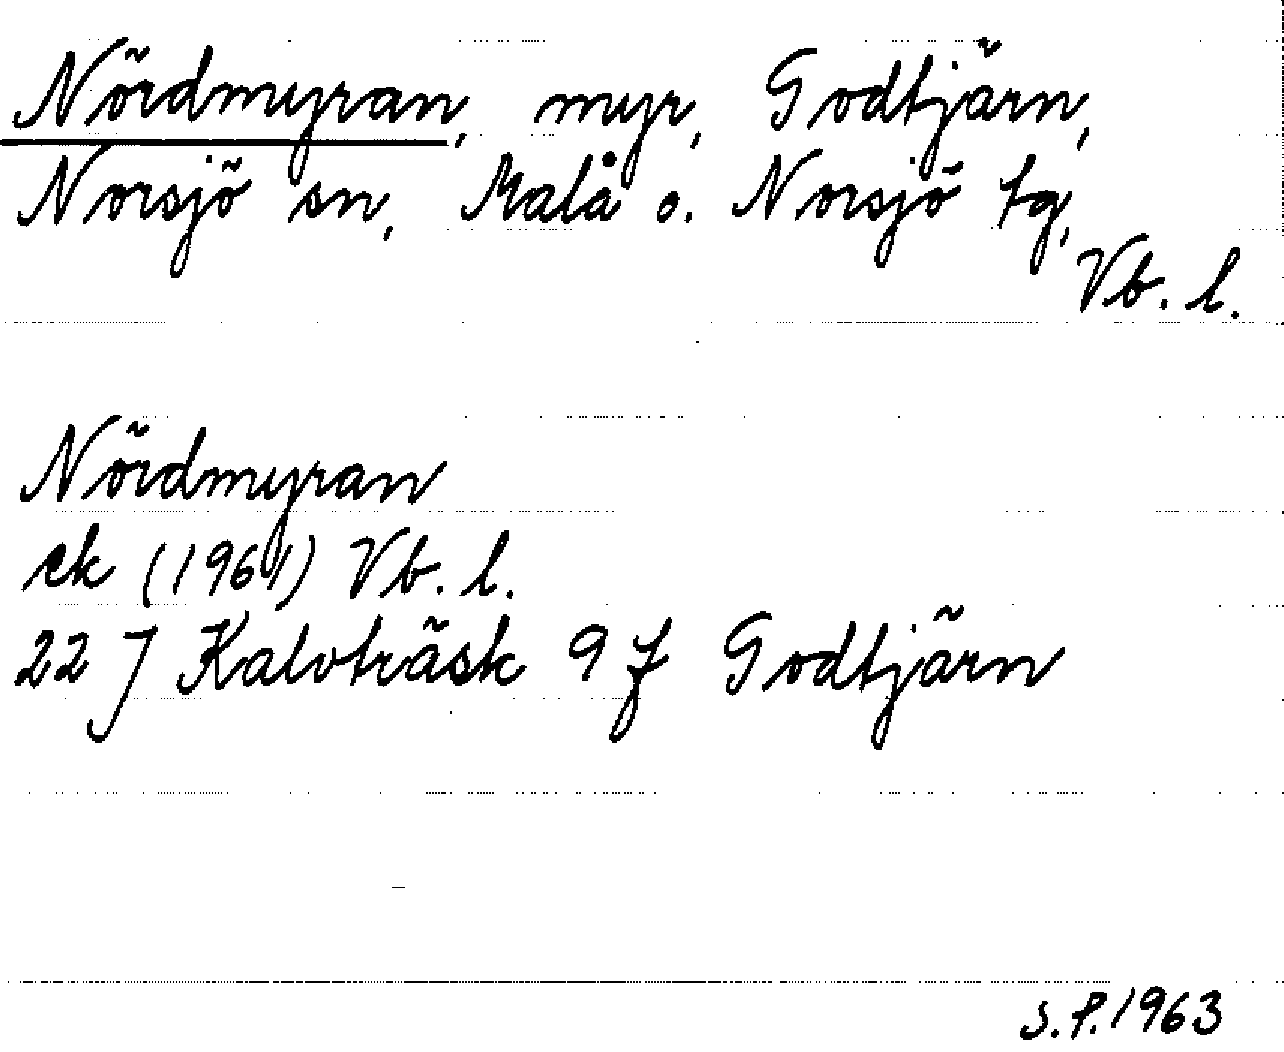 Nördmyran, myr, Godtjärn,
Norsjö sn, Malå o. Norsjö tg,
Vb. l.
Nördmyran
ek (1961) Vb. l.
22 J Kalvträsk 9 f Godtjärn
S.P. 1963